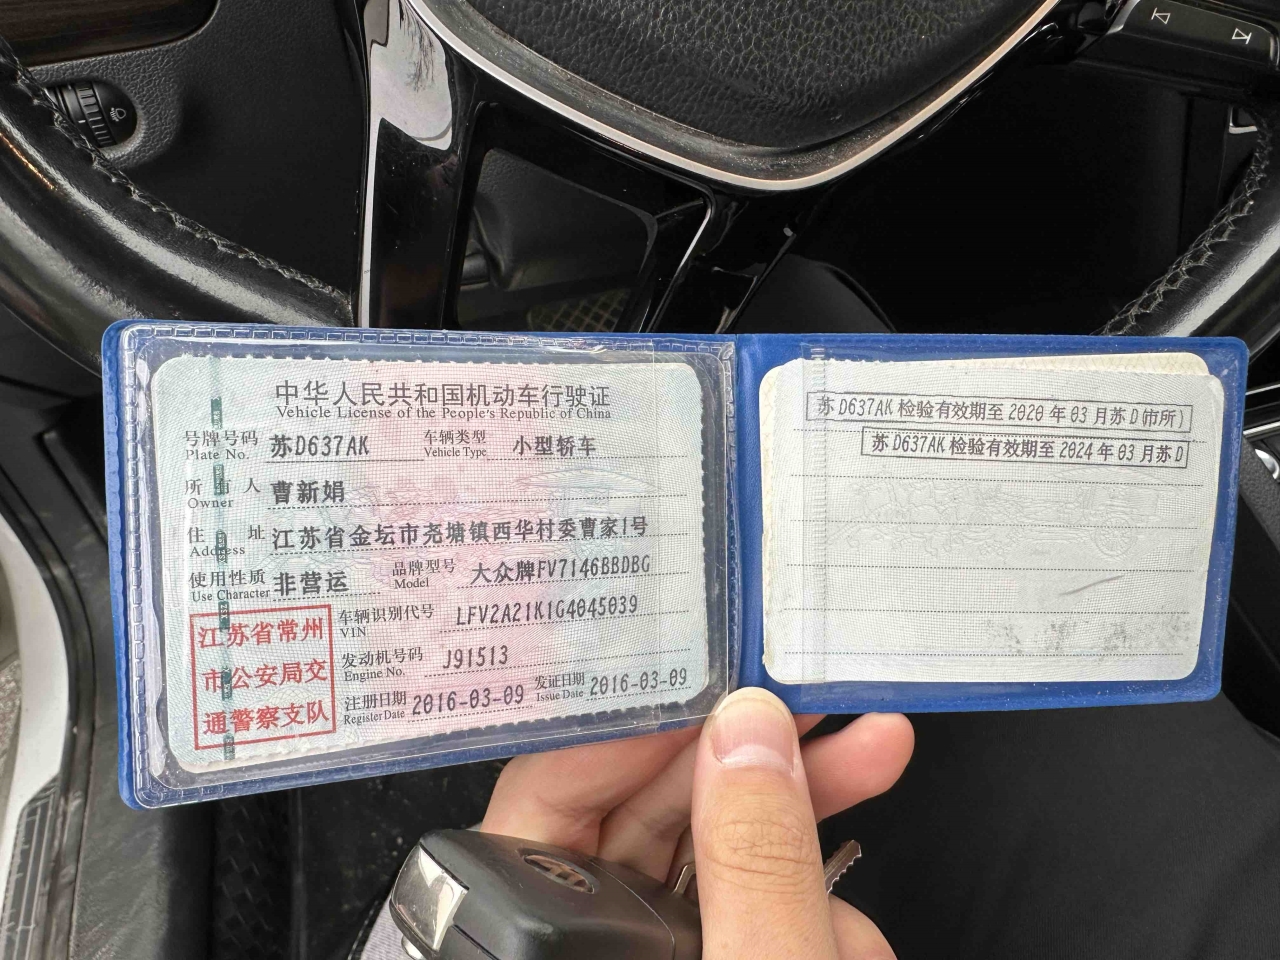 中华人民共和国机动车行驶证
Vehicle License of the People's Republic of China
号牌号码 苏D637AK 车辆类型 小型轿车
Plate No. Vehicle Type
所有人 曹新娟
Owner
住址 江苏省金坛市尧塘镇西华村委曹家1号
Address
使用性质 非营运 品牌型号 大众牌FV7146BBDBG
Use Character Model
江苏省常州
市公安局交
通警察支队
车辆识别代号 LFV2A21K1G4045039
VIN
发动机号码 J91513
Engine No.
注册日期 2016-03-09 发证日期 2016-03-09
Register Date Issue Date
苏D637AK检验有效期至2020年03月苏D(市所)
苏D637AK检验有效期至2024年03月苏D